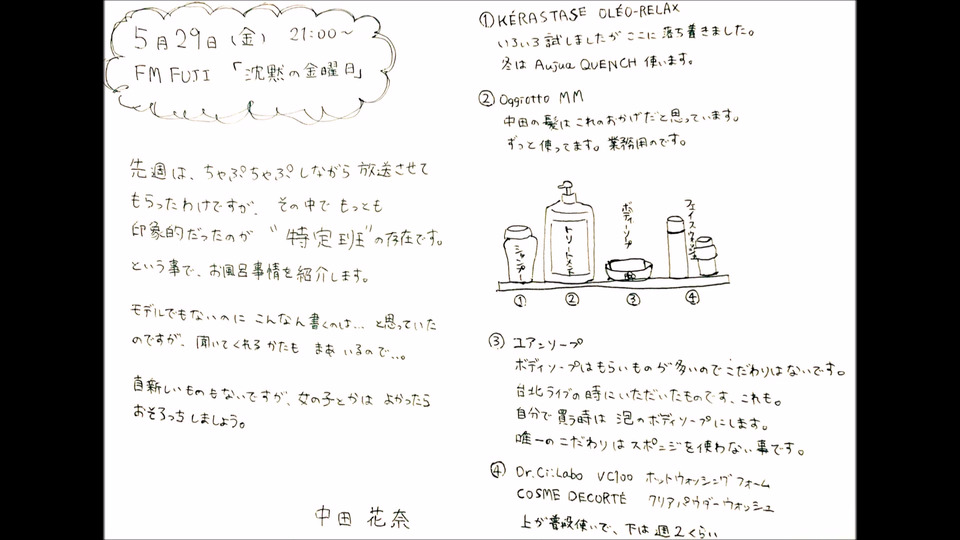 5月29日(金) 21:00～
FM FUJI 「沈黙の金曜日」
先週は、ちゃぷちゃぷしながら放送させて
もらったわけですが、その中でもっとも
印象的だったのが "特定班"の存在です。
という事で、お風呂事情を紹介します。
モデルでもないのに こんなん書くのは... と思っていた
のですが、聞いてくれるかたも まあ いるので...。
直新しいものもないですが、女の子とかは よかったら
おそろっちしましょう。
中田 花奈
① KÉRASTASE OLÉO-RELAX
いろいろ試しましたがここに落ち着きました。
冬は Aujua QUENCH 使います。
② Oggiotto MM
中田の髪はこれのおかげだと思っています。
ずっと使ってます。業務用のです。
シャンプー
トリートメント
ボディソープ
フェイスウォッシュ
① ② ③ ④
③ ユアンソープ
ボディソープはもらいものが多いのでこだわりはないです。
台北ライブの時にいただいたものです、これも。
自分で買う時は 泡のボディソープにします。
唯一のこだわりはスポンジを使わない事です。
④ Dr.Ci:Labo VC100 ホットウォッシングフォーム
COSME DECORTÉ クリアパウダーウォッシュ
上が普段使いで、下は週2くらい